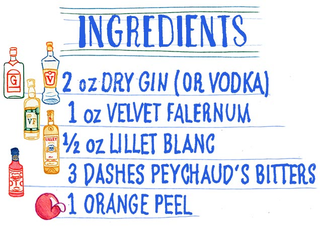 INGREDIENTS
2 oz DRY GIN (OR VODKA)
1 oz VELVET FALERNUM
½ oz LILLET BLANC
3 DASHES PEYCHAUD'S BITTERS
1 ORANGE PEEL
G
V
VF